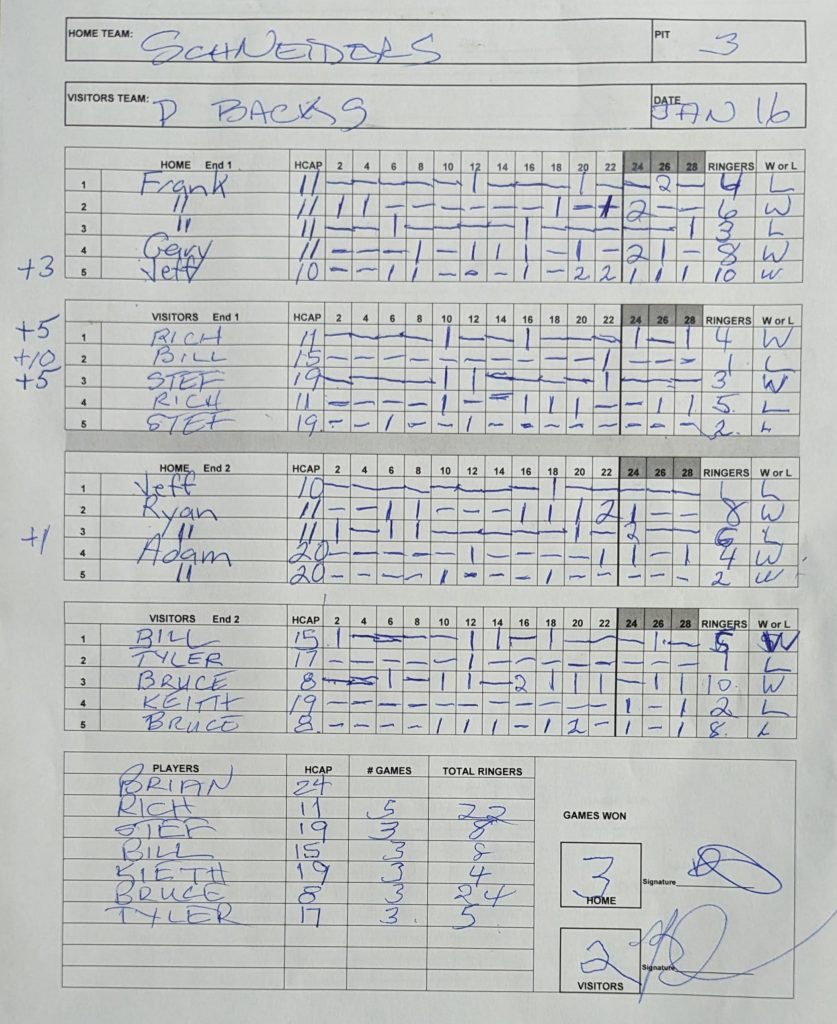 HOME TEAM: SCHNEIDERS PIT 3
VISITORS TEAM: D BACKS DATE JAN 16
HOME End 1 HCAP 2 4 6 8 10 12 14 16 18 20 22 24 26 28 RINGERS W or L
1 Frank 11 — — — — — 1 — — — 1 — — 2 — 4 L
2 " 11 1 1 — — — — — — 1 — 1 2 — — 6 W
3 " 11 — — 1 — — — — 1 — — — — — 1 3 L
4 Gary 11 — — — 1 — 1 1 — — 1 — 2 1 — 8 W
+3 5 Jeff 10 — — 1 1 — — — 1 — 2 2 1 1 1 10 W
VISITORS End 1 HCAP 2 4 6 8 10 12 14 16 18 20 22 24 26 28 RINGERS W or L
+5 1 RICH 11 — — — — 1 — — 1 — — — 1 — 1 4 W
+10 2 BILL 15 — — — — — — — — — — 1 — — — 1 L
+5 3 STEF 19 — — — — 1 1 — — — — 1 — — — 3 W
4 RICH 11 — — — — 1 — — 1 1 1 — — 1 1 5. L
5 STEF 19 — — 1 — — 1 — — — — — — — — 2. L
HOME End 2 HCAP 2 4 6 8 10 12 14 16 18 20 22 24 26 28 RINGERS W or L
1 Jeff 10 — — — — — — — — 1 — — — — — 1 L
2 Ryan 11 — — 1 1 — — — 1 1 1 2 1 — — 8 W
+1 3 " 11 1 — 1 1 — — — — — 1 — 2 — — 6 L
4 Adam 20 — — — — — 1 — — — — 1 1 — 1 4 W
5 " 20 — — — — 1 — — — 1 — — — — — 2 W
VISITORS End 2 HCAP 2 4 6 8 10 12 14 16 18 20 22 24 26 28 RINGERS W or L
1 BILL 15 1 — — — — 1 1 — 1 — — — 1 — 5 W
2 TYLER 17 — — — — — 1 — — — — — — — — 1 L
3 BRUCE 8 — — 1 — 1 1 — 2 1 1 1 — 1 1 10. W
4 KEITH 19 — — — — — — — — — — — 1 — 1 2 L
5 BRUCE 8 — — — — 1 1 1 — 1 2 — 1 — 1 8. L
PLAYERS HCAP # GAMES TOTAL RINGERS
BRIAN 24
RICH 11 5 22
STEF 19 3 8
BILL 15 3 8
KIETH 19 3 4
BRUCE 8 3 24
TYLER 17 3. 5
GAMES WON
3 HOME Signature
2 VISITORS Signature